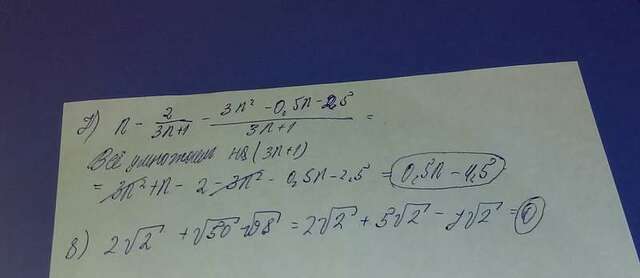 7) n - 2/(3n+1) - (3n² - 0,5n - 2,5)/(3n+1) =
Всё умножаем на (3n+1)
= 3n² + n - 2 - 3n² - 0,5n - 2,5 = 0,5n - 4,5
8) 2√2 + √50 - √98 = 2√2 + 5√2 - 7√2 = 0